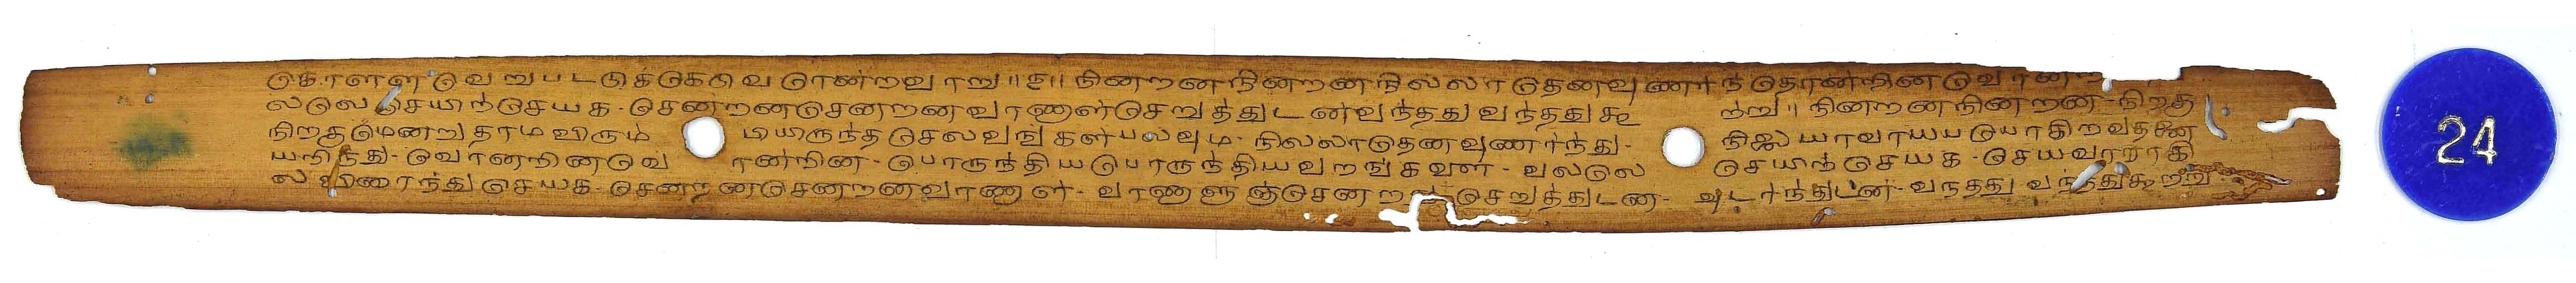 கொளளவெறுபடடுககெகவெரொன்றவாறு॥௪॥நினறனநினறனநிலலாதெனவுணர்நதொன்றினவொன
லலெசெயிற்செயக-சென்றனசெனறனவாணாள்செறுத்துடன்வந்ததுவந்ததுகூற்று॥நினறனநினறன-நிறகு
நிறகுமெனறுதாமவிரும்பியிருந்தசெலவங்கள்பலவும-நிலலாதெனவுணர்ந்து-நிலையாவாயயெயாகிறவதனை
யறிந்து-வொனறினவெவான்றின-பொருந்தியபொருந்தியவறங்கவள்-வலலெசெயிற்செயக-செயவாராகி
லவிரைந்துசெயக-சென்றனசெனறனவாணாள்-வாணாளஞ்செனறனசெறுத்துடன-அடர்ந்துடன்-வநதது வந்ததுகூற்று